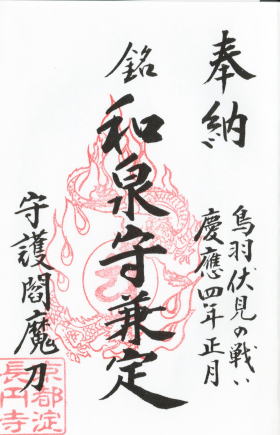 奉納
鳥羽伏見の戦い
慶應四年正月
銘
和泉守兼定
守護閻魔刀
京都淀
長円寺